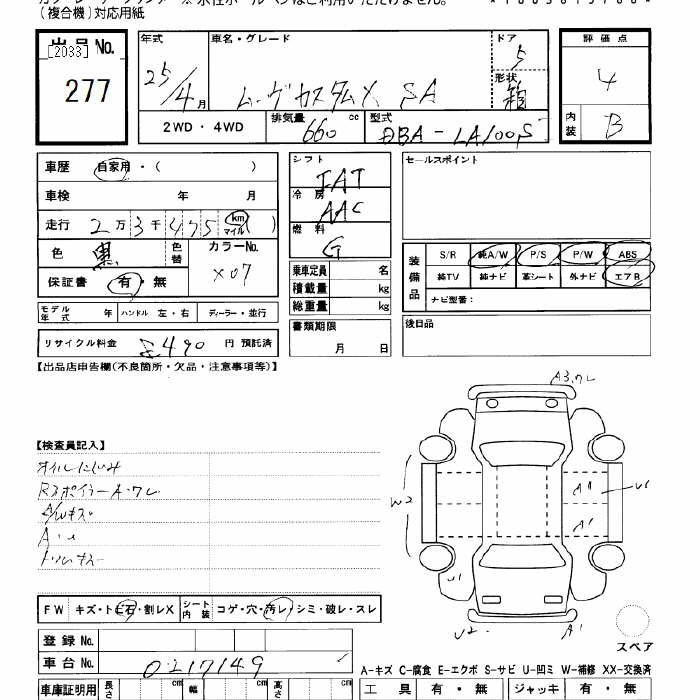 (複合機)対応用紙
出品 No.
[2033]
277
年式
25/4月
車名・グレード
ムーヴカスタムX SA
ドア
5
形状
箱
2WD・4WD
排気量 cc
660
型式
DBA-LA100S
評価点
4
内装
B
車歴 自家用・( )
車検 年 月
走行 2万3千475 km マイル ( )
色 黒 色替
カラーNo.
X07
保証書 有・無
モデル年式 年 ハンドル 左・右 ディーラー・並行
リサイクル料金 円 預託済
シフト
IAT
冷房
AAC
燃料
G
乗車定員 名
積載量 kg
総重量 kg
書類期限
月 日
セールスポイント
装備品
S/R 純A/W P/S P/W ABS
純TV 純ナビ 革シート 外ナビ エアB
ナビ型番:
後日品
【出品店申告欄(不良箇所・欠品・注意事項等)】
【検査員記入】
オイルにじみ
A/Wキズ
A・U
FW キズ・トビ石・割レX シート内装 コゲ・穴・汚レ・シミ・破レ・スレ
登録 No.
車台 No. 0217149
車庫証明用 長さ cm 幅 cm 高さ cm
A3,ワレ
W2
A1
U1
A1
U1
U2
A1
スペア
A-キズ C-腐食 E-エクボ S-サビ U-凹ミ W-補修 XX-交換済
工具 有・無 ジャッキ 有・無